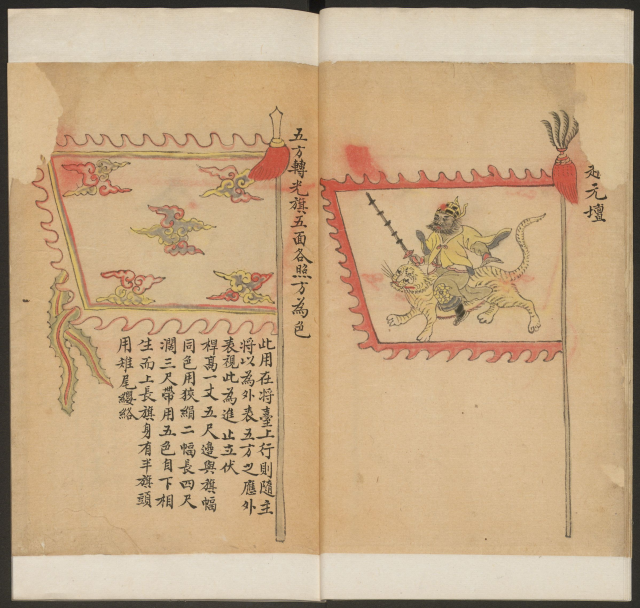 元壇
五方轉光旗五面各照方為色
此用在將臺上行則隨主
將以為外表五方之應外
表視此為進止立伏
桿高一丈五尺邊與旗幅
同色用狹絹二幅長四尺
濶三尺帶用五色自下相
生而上長旗身有半旗頭
用雉尾纓絡